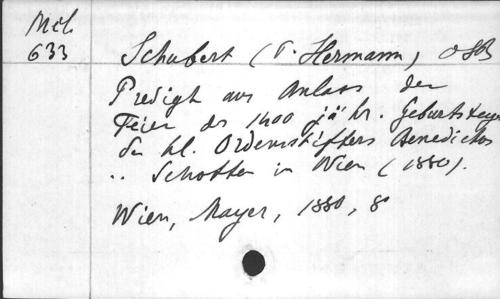 Mel.
633
Schubert (P. Hermann) OSB
Predigt aus Anlass der
Feier des 1400 jähr. Geburtstages
des hl. Ordensstifters Benedictus
.. Schotten in Wien (1880).
Wien, Mayer, 1880, 8°